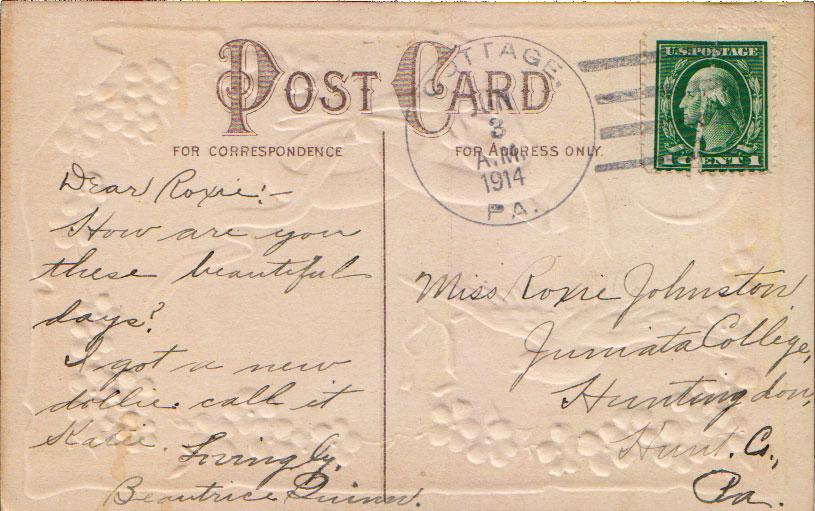 POST CARD
FOR CORRESPONDENCE
FOR ADDRESS ONLY.
COTTAGE,
3
A.M.
1914
PA.
U.S. POSTAGE
1 CENT 1
Dear Roxie:-
How are you
these beautiful
days?
I got a new
dollie. call it
Katie.
Lovingly,
Beautrice Quinn.
Miss Roxie Johnston,
Juniata College,
Huntingdon,
Hunt. Co.,
Pa.